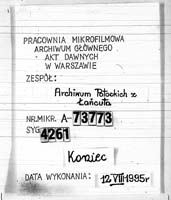 PRACOWNIA MIKROFILMOWA
ARCHIWUM GŁÓWNEGO
AKT DAWNYCH
W WARSZAWIE
ZESPÓŁ:
Archiwum Potockich z
Łańcuta
NR.MIKR. A-73773
SYG. 4261
Koniec
DATA WYKONANIA: 12 VII 1995r